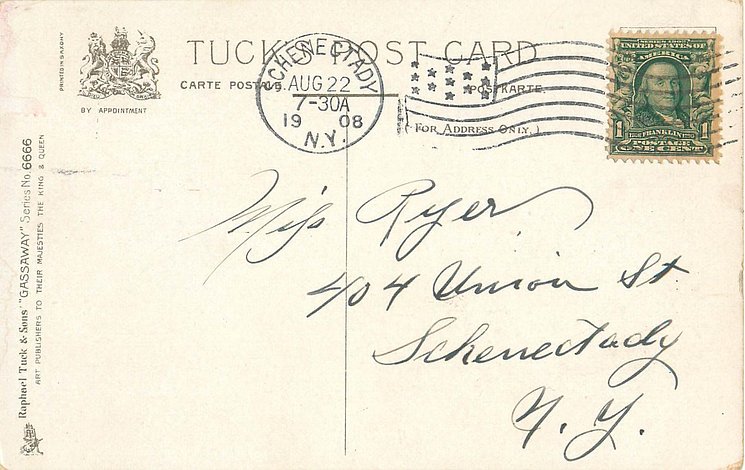 TUCK'S POST CARD
CARTE POSTALE
POSTKARTE
(FOR ADDRESS ONLY.)
BY APPOINTMENT
PRINTED IN SAXONY
SCHENECTADY
AUG 22
7-30A
1908
N.Y.
UNITED STATES OF
AMERICA
1 FRANKLIN 1
POSTAGE
ONE CENT
Miss Ryer
404 Union St.
Schenectady
N.Y.
Raphael Tuck & Sons' "GASSAWAY" Series No. 6666
ART PUBLISHERS TO THEIR MAJESTIES THE KING & QUEEN